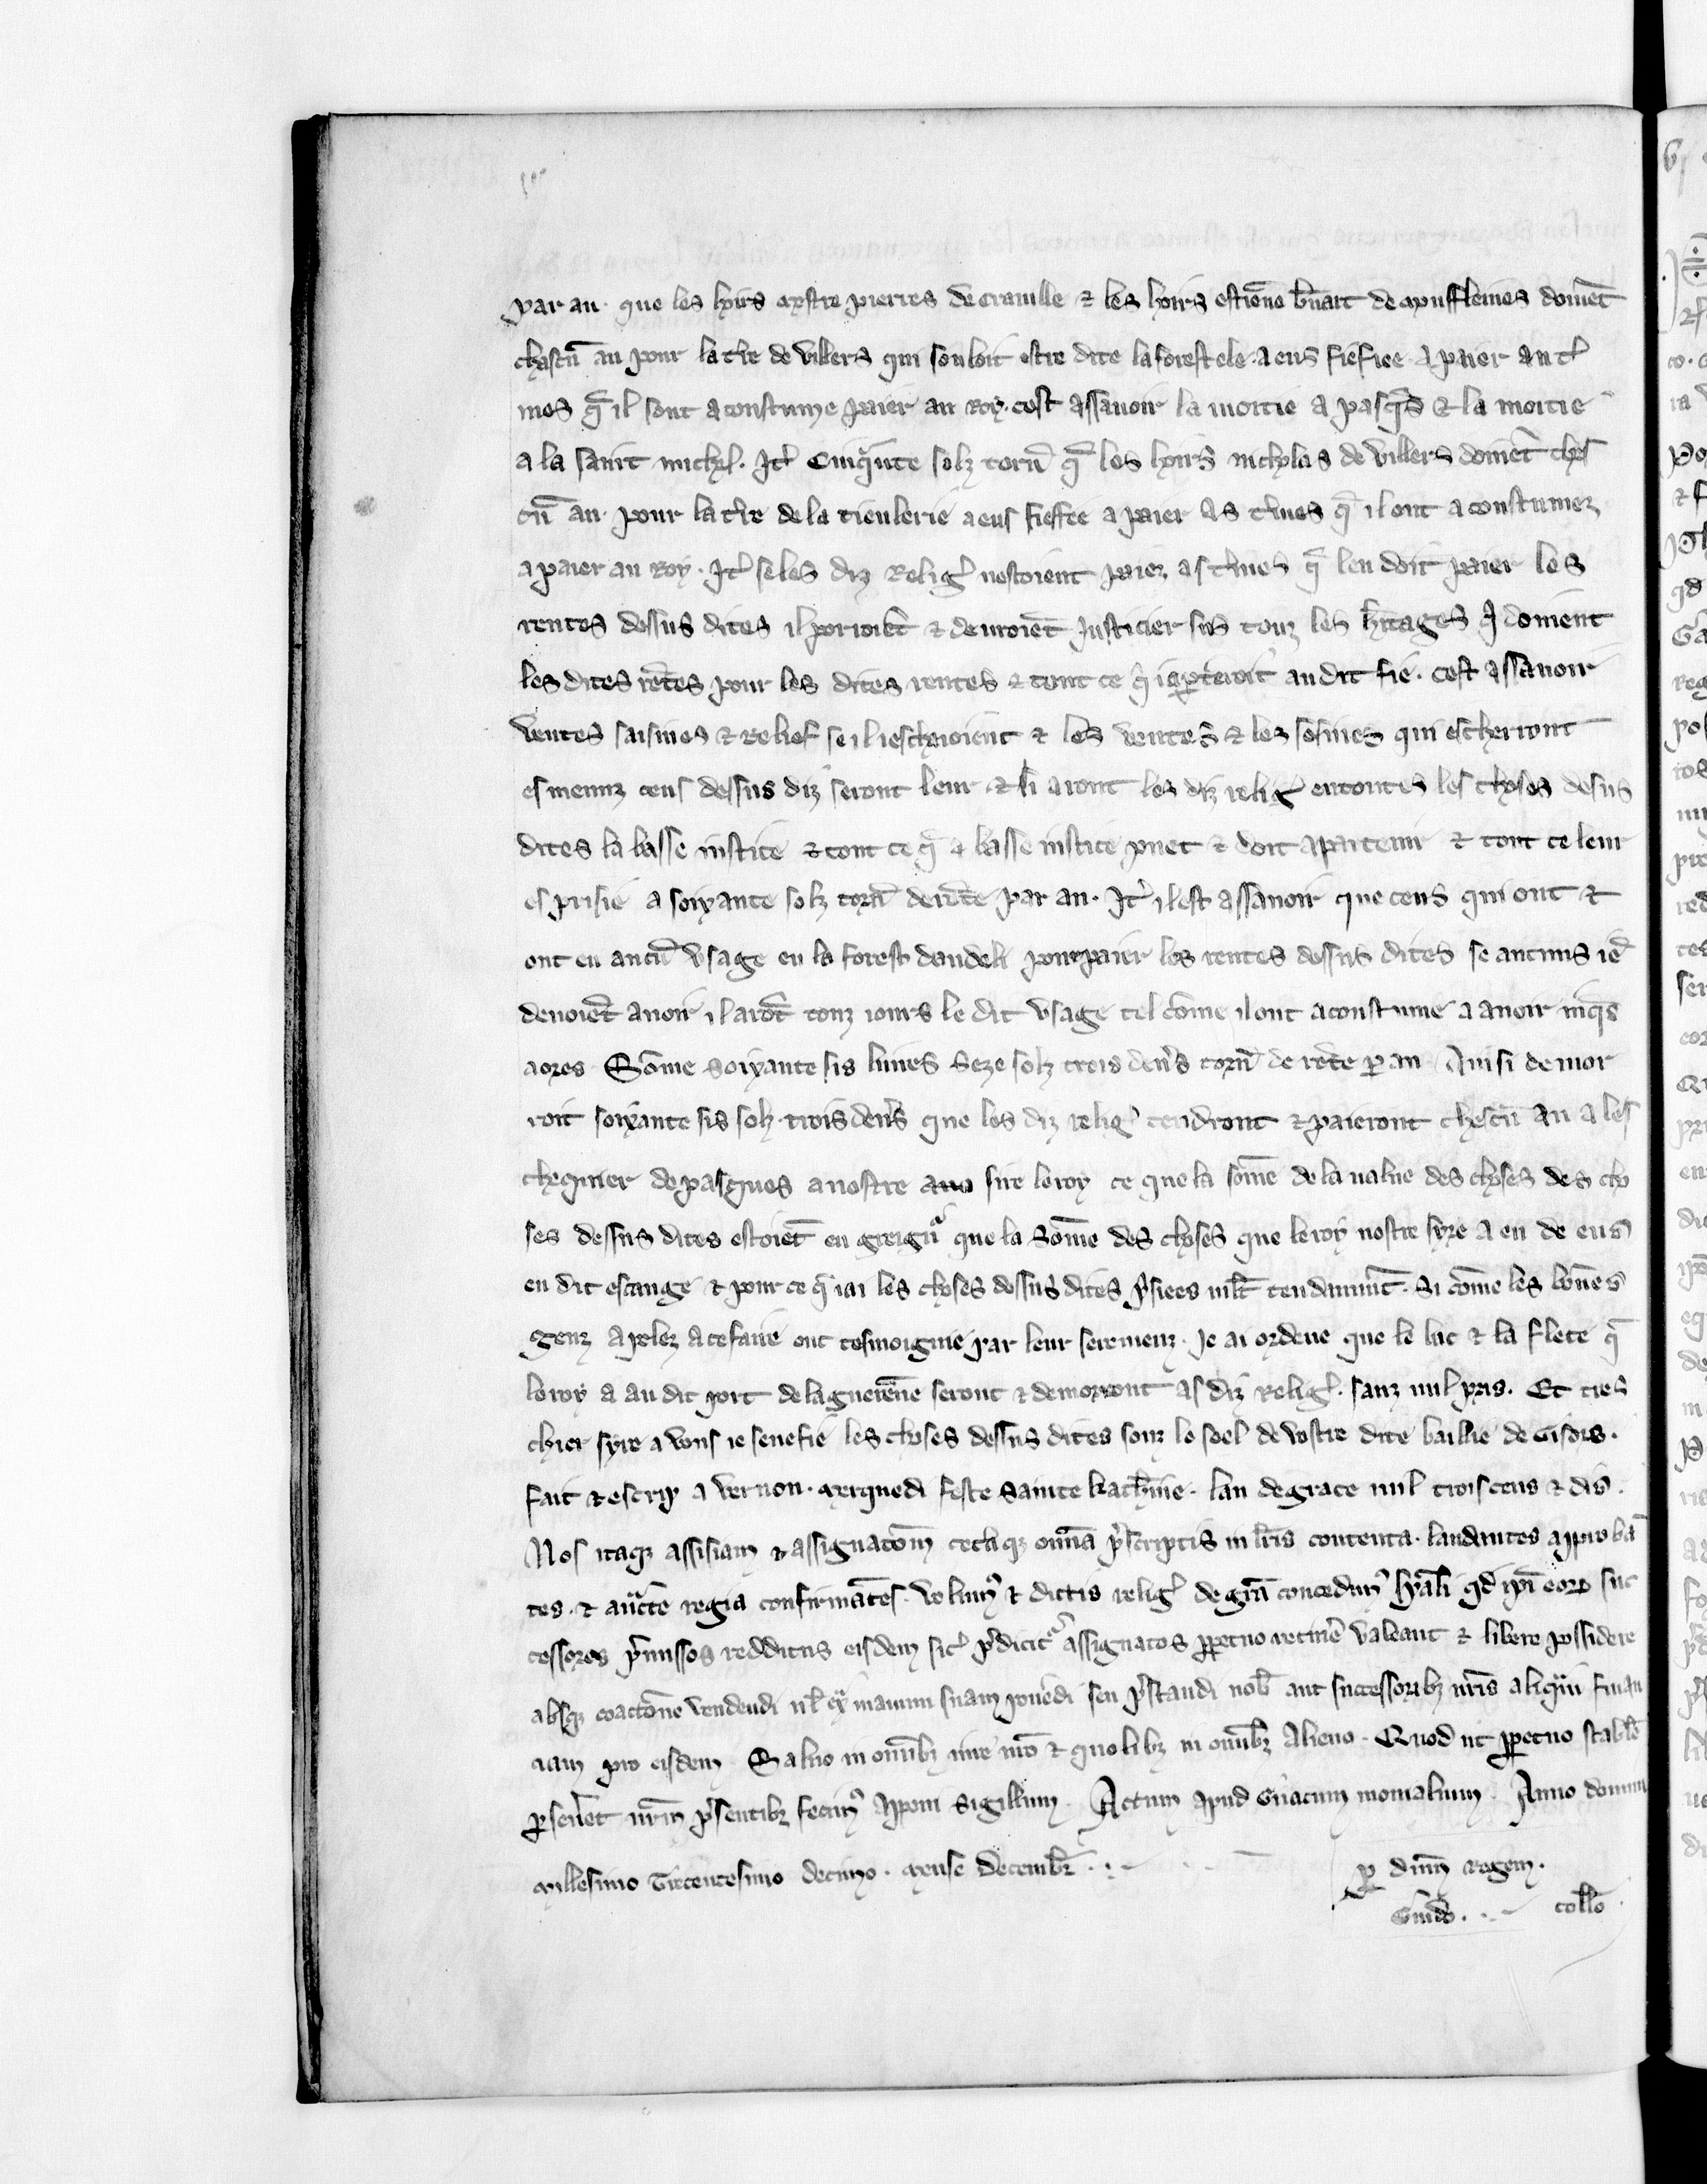 par an. que les hoirs mestre pierres de cranille ⁊ les hoirs estiēne b̄nart de mouffleines doiuēt
chascū an pour la t̄re de villers qui souloit estre dite la forestele. a eus fiefiee a paier au t̄
mes q̄ il sont acoustume paier au Roy. cest assauoir la moitie a pasq̄s ⁊ la moitie
a la saint michel. It̄ Cinq̄nte solz torn̄ q̄ les hoirs nicholas de villers doiuēt ches
cū an. pour la t̄re de la tieulerie a eus fieffee a paier as t̄mes q̄ il ont acoustumez
a paier au Roy. It̄ se les diz Reliḡ nestoient paiez as t̄mes q̄ len doit paier les
rentes dessus dites il porroiēt ⁊ deuroiēt Justicier sus touz les h̄itages q̄ doiuent
les dites rētes pour les dites rentes ⁊ tout ce q̄ i apartēroit au dit fie. cest assauoir
ventes saisines ⁊ relief se il i escheoient ⁊ les ventes ⁊ les sesines qui escherront
es menuz cens dessus diz seront leur ⁊ si aront les diz reliḡ en toutes les choses desus
dites la basse iustice ⁊ tout ce q̄ a basse iustice puet ⁊ doit apartenir ⁊ tout ce leur
es prisie a soixante solz torn̄ de rēte par an. It̄ il est assauoir que ceus qui ont ⁊
ont eu aucū vsage en la forest dandeli pour paier les rentes dessus dites se aucuns i
deuoiēt auoir il arōt touz iours le dit vsage tel cōme il ont acoustume a auoir iusq̄s
a ores Sōme soixante sis liures seze solz trois den̄s torn̄ de rēte p̄ an Ainsi demor
roit soixante sis solz trois den̄s que les diz reliḡ rendront ⁊ paieront chescū an a les
chequier de pasques a nostre sire le roy ce que la sōme de la value des choses des cho
ses dessus dites estoiēt en greign̄ que la Sōme des choses que le roy nostre syre a eu de eus
en dit escange ⁊ pour ce q̄ iai les choses dessus dites p̄siees. Si cōme les bōnes
genz apelez a ce faire ont tesmoignie par leur seremenz. Je ai ordene que le bac ⁊ la flete q̄
le roy a au dit port de la gueiēne seront ⁊ demorront as diz Reliḡ. sanz nul pris. Et tres
chier syre a vous ie senefie les choses dessus dites souz le seel de vostre dite baillie de Gisors.
fait ⁊ escrip a vernon. merquedi feste sainte kath̄ine. lan de grace mil trois cens ⁊ dis.
Nos itaq̄ assisiam ⁊ assignatōm cetaq̄ om̄ia p̄scriptis in l̄ris contenta. laudantes approbā
tes. ⁊ auctē regia confirmātes. volum̄ ⁊ dictis reliḡ de gr̄a concedim̄ qd ip̄i eorꝝ suc
cessores p̄missos redditus eisdem sic̄ p̄dicit̄ assignatos ꝑpetuo retinē valeant ⁊ libere possidere
absq̄ coactōne vendendi ul̄ ex̄ manum suam ponēdi seu p̄standi nob̄ aut successorib̄ nr̄is aliq̄m finan
ciam pro eisdem. Saluo in om̄ib̄ iure nr̄o ⁊ quolib̄ in om̄ib̄ Alieno. Quod ut ꝑpetuo stabīle
ꝑseūet nr̄m p̄sentib̄ fecim̄ apponi sigillum. Actum apud Gn̄acum monialium. Anno domini
millesimo Tricentesimo decimo. mense decembr̄.
ꝑ dn̄m Regem.
Guido. coll̄o